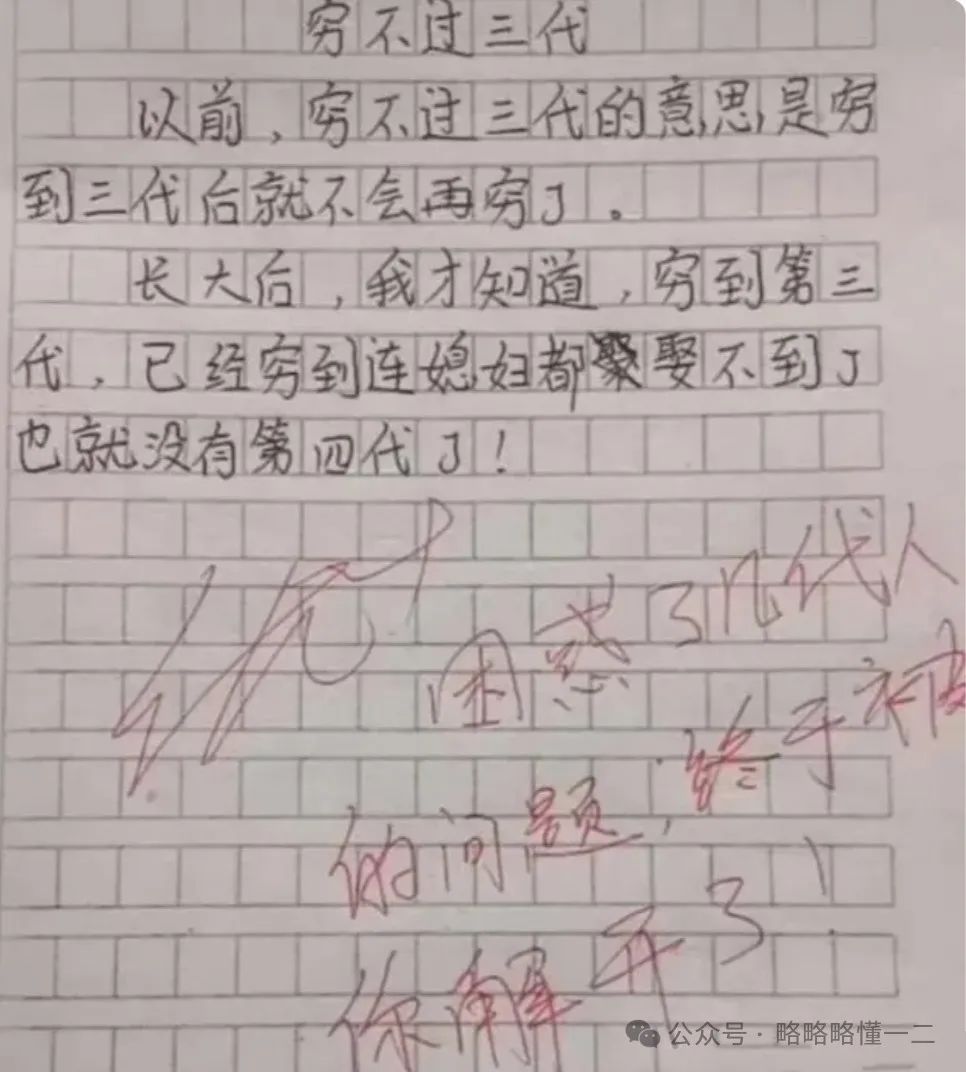 穷不过三代
以前，穷不过三代的意思是穷
到三代后就不会再穷了。
长大后，我才知道，穷到第三
代，已经穷到连媳妇都娶不到了
也就没有第四代了！
优+
困惑了几代人
的问题，终于被
你解开了！
公众号·略略略懂一二